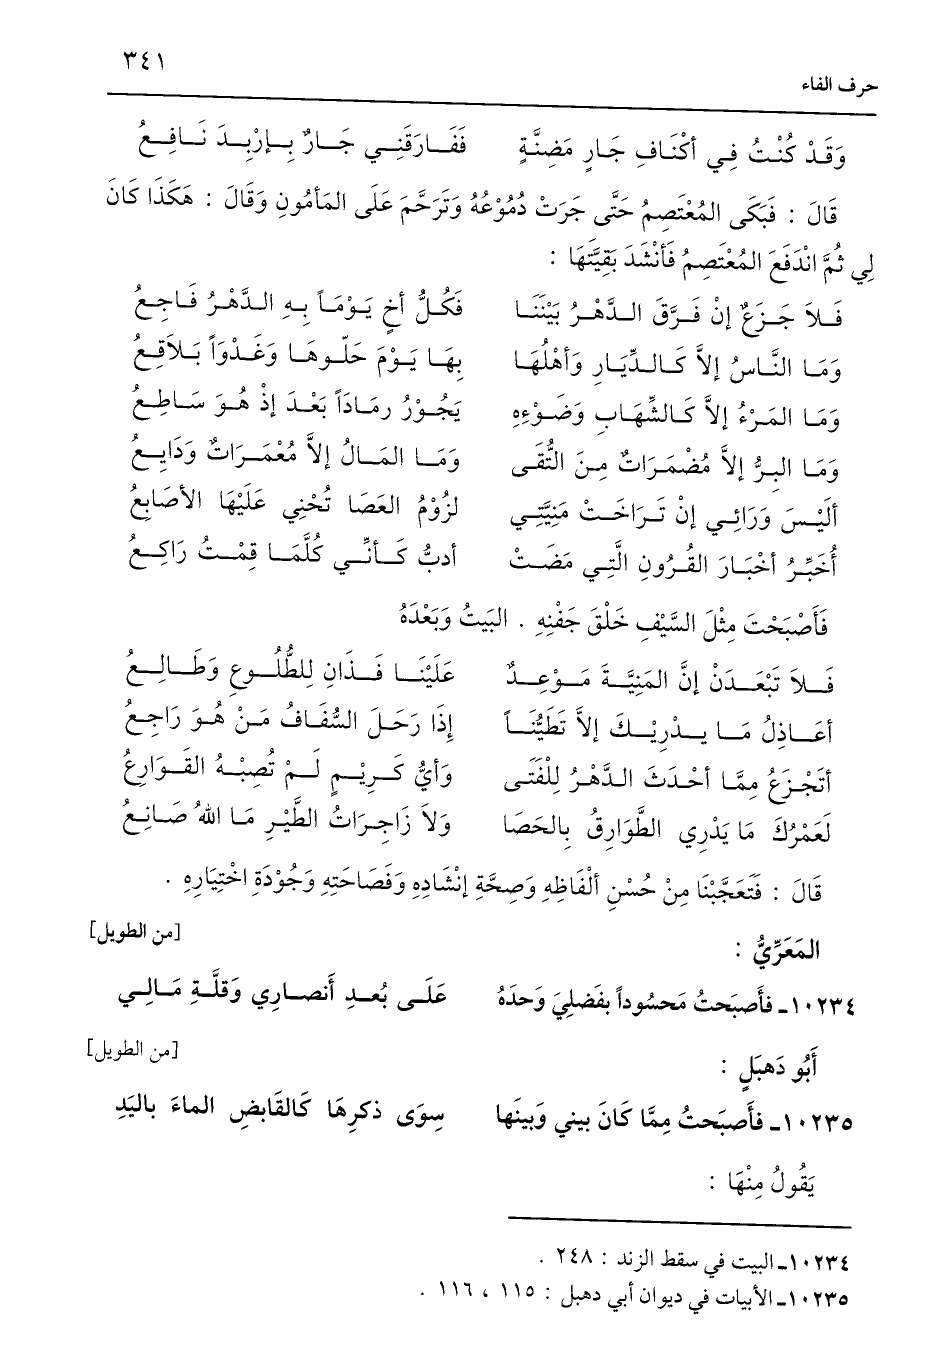 ٣٤١
حرف الفاء
وَقَدْ كُنْتُ فِي أكْنَافِ جَارِ مَضِنَّةٍ فَفَارَقَنِي جَارٌ بِإرْبِدَ نَافِعُ
قَالَ : فَبَكَى المُعْتَصِمُ حَتَّى جَرَتْ دُمُوْعُهُ وَتَرَحَّمَ عَلَى المَأمُونِ وَقَالَ : هَكَذَا كَانَ
لِي ثُمَّ انْدَفَعَ المُعْتَصِمُ فَأنْشَدَ بَقِيَّتَهَا :
فَلاَ جَزِعٌ إنْ فَرَّقَ الدَّهْرُ بَيْنَنَا فَكُلُّ أخٍ يَوْمَاً بِهِ الدَّهْرُ فَاجِعُ
وَمَا النَّاسُ إلاَّ كَالدِّيَارِ وَأهْلُهَا بِهَا يَوْمَ حَلّوهَا وَغَدْوَاً بَلاَقِعُ
وَمَا المَرْءُ إلاَّ كَالشِّهَابِ وَضَوْءِهِ يَحُوْرُ رمَادَاً بَعْدَ إذْ هُوَ سَاطِعُ
وَمَا البِرُّ إلاَّ مُضْمَرَاتٌ مِنَ التُّقَى وَمَا المَالُ إلاَّ مُعْمَرَاتٌ وَدَايِعُ
ألَيْسَ وَرَائِي إنْ تَرَاخَتْ مَنِيَّتِي لزُوْمُ العَصَا تُحْنِي عَلَيْهَا الأصَابِعُ
أُخَبِّرُ أخْبَارَ القُرُونِ الَّتِي مَضَتْ أدبُّ كَأنِّي كُلَّمَا قِمْتُ رَاكِعُ
فَأصْبَحْتَ مِثْلَ السَّيْفِ خَلْقَ جَفْنِهِ . البَيتُ وَبَعْدَهُ
فَلاَ تَبْعَدَنْ إنَّ المَنِيَّةَ مَوْعِدٌ عَلَيْنَا فَذَانِ لِلطُّلُوعِ وَطَالِعُ
أعَاذِلُ مَا يدْرِيْكَ إلاَّ تَظَنُّنَاً إذَا رَحَلَ السُّفَافُ مَنْ هُوَ رَاجِعُ
أتَجْزَعُ مِمَّا أحْدَثَ الدَّهْرُ لِلْفَتَى وَأيُّ كَرِيْمٍ لَمْ تُصِبْهُ القَوَارِعُ
لَعَمْرُكَ مَا يَدْرِي الطَّوَارِقُ بِالحَصَا وَلاَ زَاجِرَاتُ الطَّيْرِ مَا اللهُ صَانِعُ
قَالَ : فَتَعَجَّبْنَا مِنْ حُسْنِ ألْفَاظِهِ وَصِحَّةِ إنْشَادِهِ وَفَصَاحَتِهِ وَجُوْدَةِ اخْتِيَارِهِ .
المَعَرِّيُّ : [من الطويل]
١٠٢٣٤ـ فأَصبَحتُ مَحسُوداً بفَضلِيَ وَحدَهُ عَلَى بُعدِ أَنصاري وَقلَّةِ مَالِي
أبُو دَهبَلٍ : [من الطويل]
١٠٢٣٥ـ فأَصبَحتُ مِمَّا كَانَ بيني وَبينَها سِوَى ذكرِهَا كَالقَابضِ الماءَ باليَدِ
يَقُولُ مِنْهَا :
١٠٢٣٤ـ البيت في سقط الزند : ٢٤٨ .
١٠٢٣٥ـ الأبيات في ديوان أبي دهبل : ١١٥ ، ١١٦ .